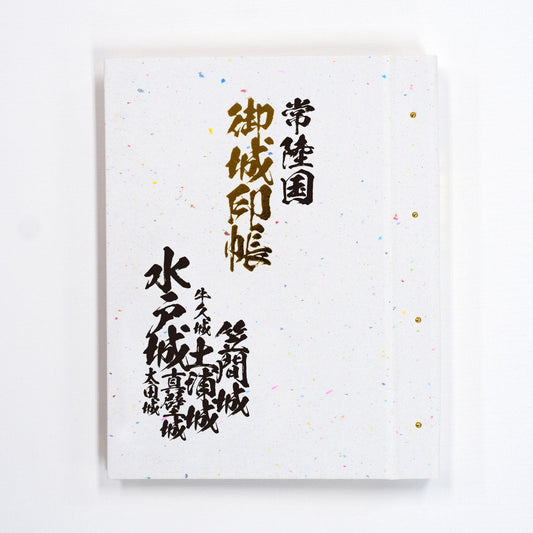 常陸国
御城印帳
笠間城
土浦城
牛久城
真壁城
水戸城
太田城